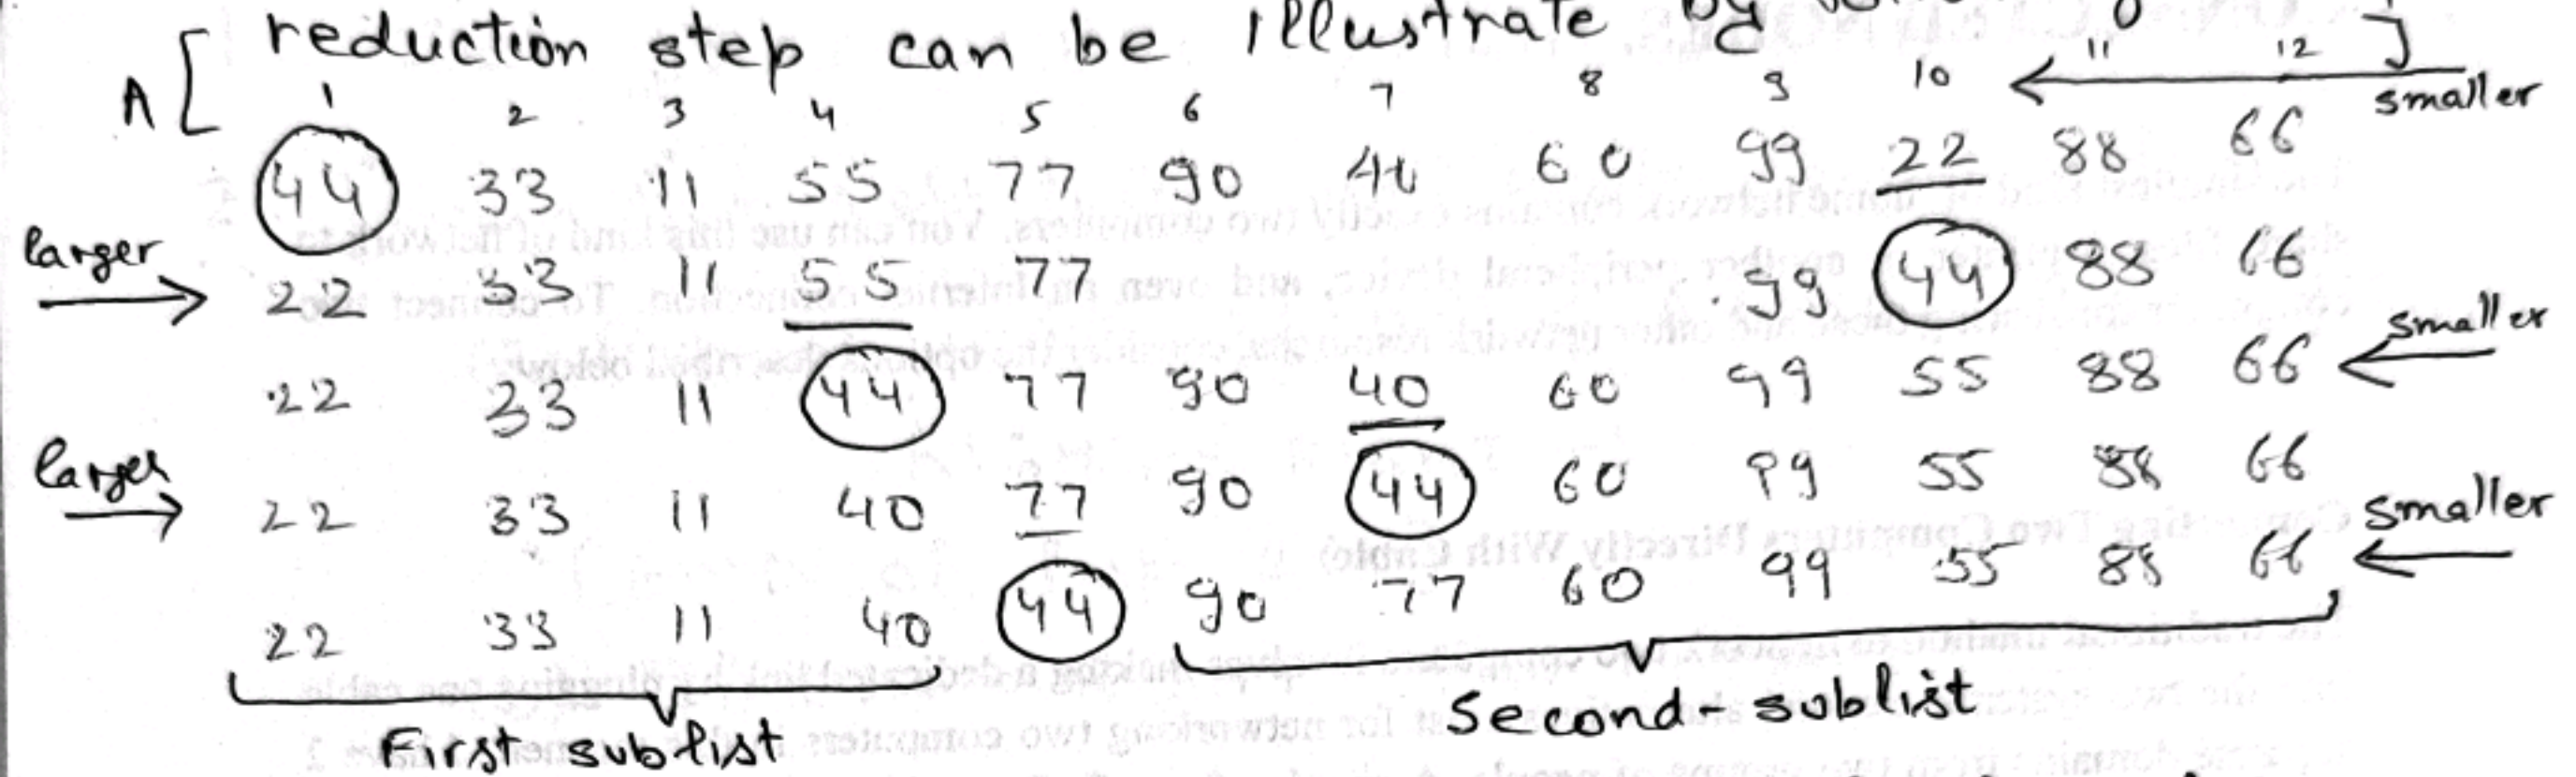 reduction step can be illustrate by
A [ 1 2 3 4 5 6 7 8 9 10 11 12 ]
smaller
44 33 11 55 77 90 40 60 99 22 88 66
larger
22 33 11 55 77 99 44 88 66
smaller
22 33 11 44 77 90 40 60 99 55 88 66
larger
22 33 11 40 77 90 44 60 99 55 88 66
smaller
22 33 11 40 44 90 77 60 99 55 88 66
First sublist
Second-sublist